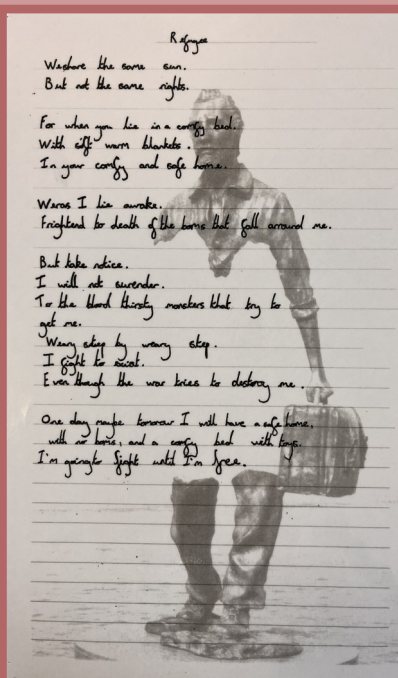 Refugee
Weshare the same sun.
But not the same rights.
For when you lie in a comfy bed.
With soft warm blankets.
In your comfy and safe home.
Weras I lie awake.
Frightend to death of the boms that fall arround me.
But take notice.
I will not surender.
To the blood thirsty monsters that try to
get me.
Weary step by weary step.
I fight to exist.
Even though the war tries to destroy me.
One day maybe tomorow I will have a safe home,
with no boms, and a comfy bed with toys.
I'm going to fight until I'm free.